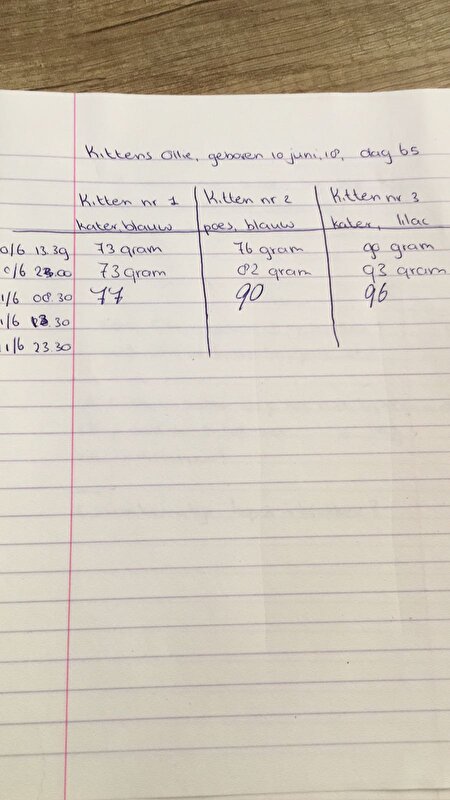 Kittens Ollie, geboren 10 juni, 18, dag 65
Kitten nr 1 Kitten nr 2 Kitten nr 3
kater, blauw poes, blauw kater, lilac
0/6 13.39 73 gram 76 gram 90 gram
0/6 23.00 73 gram 82 gram 93 gram
1/6 08.30 77 90 96
1/6 13.30
11/6 23.30